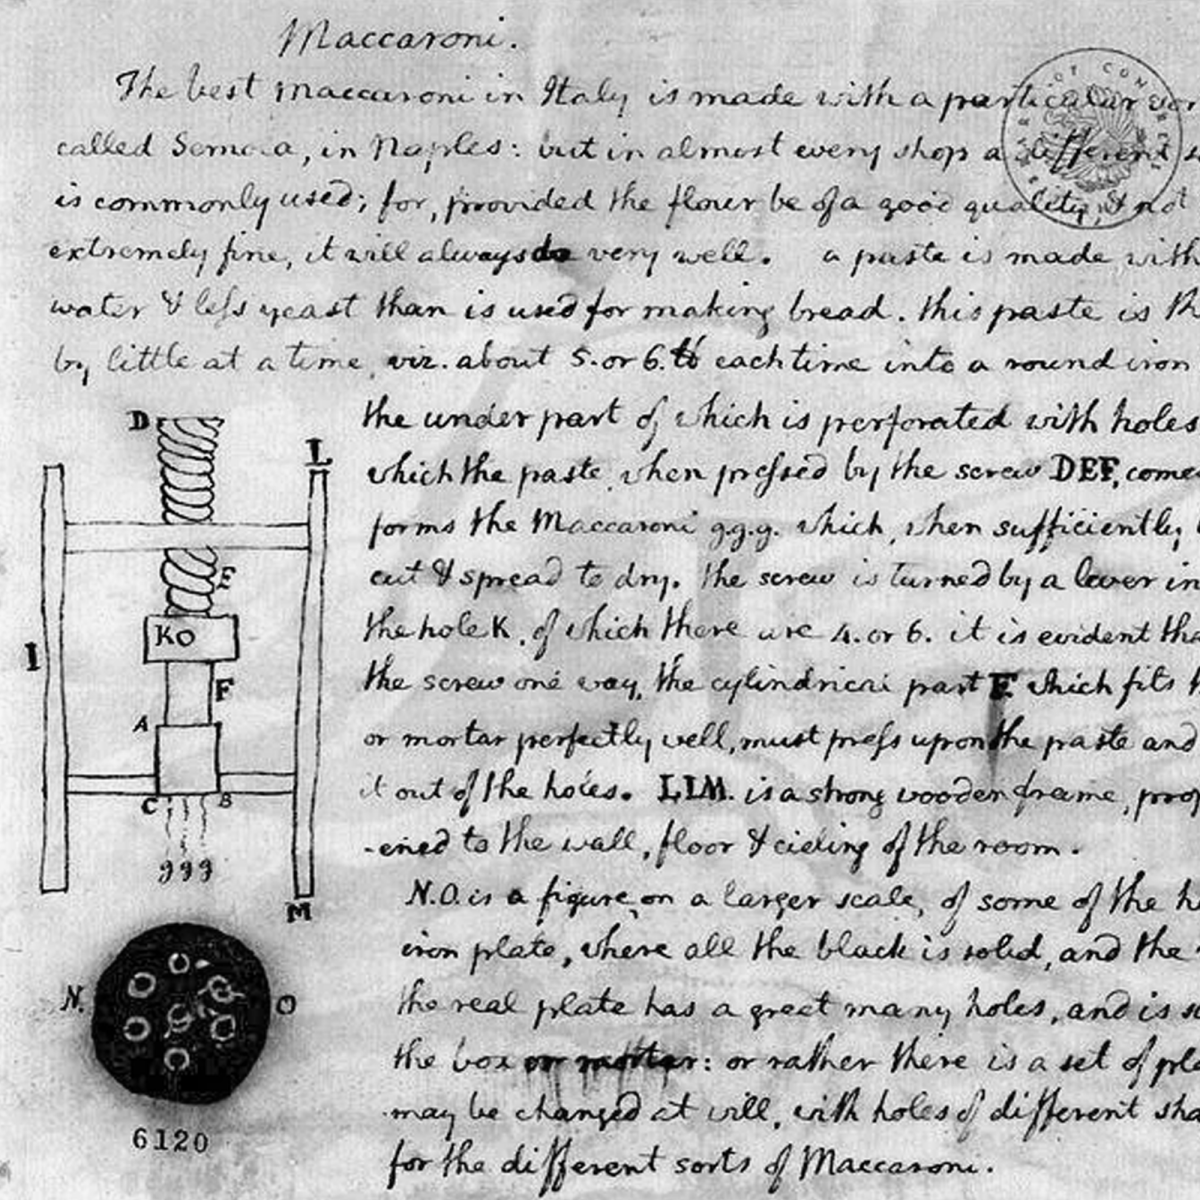 Maccaroni.
The best maccaroni in Italy is made with a particular sor
called Semola, in Naples: but in almost every shop a different s
is commonly used; for, provided the flour be of a good quality, & not
extremely fine, it will always do very well. a paste is made with
water & less yeast than is used for making bread. this paste is th
by little at a time, viz. about 5. or 6. ℔ each time into a round iron
D
the under part of which is perforated with holes
L
which the paste, when pressed by the screw DEF, come
forms the Maccaroni g.g.g. which, when sufficiently
E
cut & spread to dry. the screw is turned by a lever in
KO
the hole K. of which there are 4. or 6. it is evident tha
I
F
the screw one way, the cylindrical part F. which fits
A
or mortar perfectly well, must press upon the paste and
C B
it out of the holes. LIM. is a strong wooden frame, prop
ggg
-ened to the wall, floor & cieling of the room.
M
N.O. is a figure, on a larger scale, of some of the h
iron plate, where all the black is solid, and the
N. O
the real plate has a great many holes, and is s
the box or mortar: or rather there is a set of pla
may be changed at will, with holes of different sha
6120
for the different sorts of Maccaroni.